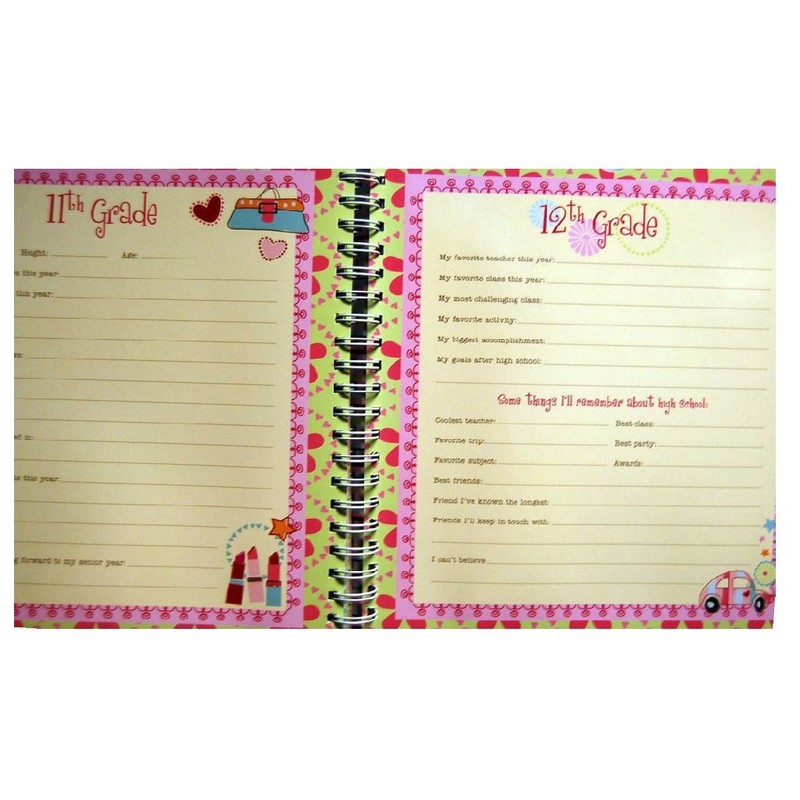 11th Grade
Height: Age:
s this year:
this year:
s:
ed in:
ns this year:
g forward to my senior year:
12th Grade
My favorite teacher this year:
My favorite class this year:
My most challenging class:
My favorite activity:
My biggest accomplishment:
My goals after high school:
Some things I'll remember about high school:
Coolest teacher: Best class:
Favorite trip: Best party:
Favorite subject: Awards:
Best friends:
Friend I've known the longest:
Friends I'll keep in touch with:
I can't believe